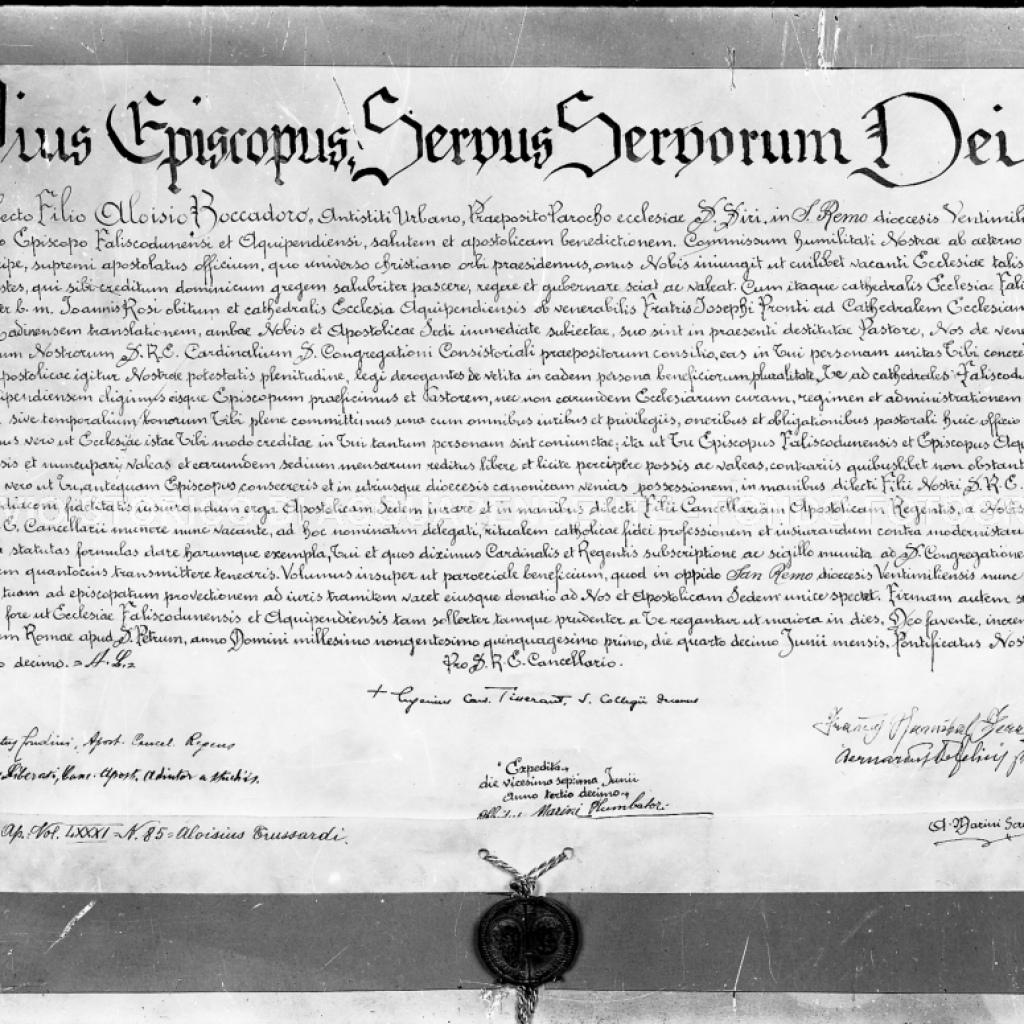 Pius Episcopus, Servus Servorum Dei
lecto Filio Aloisio Boccadoro, Antistiti Urbano, Praeposito Parocho ecclesiae S. Siri, in S. Remo dioecesis Ventimili
o Episcopo Faliscodunensi et Aquipendiensi, salutem et apostolicam benedictionem. Commissum humilitati Nostrae ab aeterno
ipe, supremi apostolatus officium, quo universo christiano orbi praesidemus, onus Nobis iniungit ut cuilibet vacanti Ecclesiae talis
stes, qui sibi creditum dominicum gregem salubriter pascere, regere et gubernare sciat ac valeat. Cum itaque cathedralis Ecclesia Fali
er b. m. Ioannis Rosi obitum et cathedralis Ecclesia Aquipendiensis ob venerabilis Fratris Iosephi Pronti ad Cathedralem Ecclesiam
adinensem translationem, ambae Nobis et Apostolicae Sedi immediate subiectae, suo sint in praesenti destitutae Pastore, Nos de vene
um Nostrorum S. R. E. Cardinalium S. Congregationi Consistoriali praepositorum consilio, eas in Tui personam unitas Tibi concre
postolicae igitur Nostrae potestatis plenitudine, legi derogantes de vetita in eadem persona beneficiorum pluralitate, Te ad cathedrales Faliscodu
ipendiensem eligimus eisque Episcopum praeficimus et Pastorem, nec non earundem Ecclesiarum curam, regimen et administrationem
sive temporalium bonorum Tibi plene committimus una cum omnibus iuribus et privilegiis, oneribus et obligationibus pastorali huic officio
us vero ut Ecclesiae istae Tibi modo creditae in Tui tantum personam sint coniunctae; ita ut Tu Episcopus Faliscodunensis et Episcopus Aqu
sis et nuncupari valeas et earumdem sedium mensarum reditus libere et licite percipere possis ac valeas, contrariis quibuslibet non obstant
vero ut Tu, antequam Episcopus consecreris et in utriusque dioecesis canonicam venias possessionem, in manibus dilecti Filii Nostri S. R. E.
diaconi fidelitatis iusiurandum erga Apostolicam Sedem iurare et in manibus dilecti Filii Cancellariam Apostolicam Regentis, a Nobis
E. Cancellarii munere nunc vacante, ad hoc nominatim delegati, ritualem catholicae fidei professionem et iusiurandum contra modernistaru
a statutas formulas dare harumque exempla, Tui et quos diximus Cardinalis et Regentis subscriptione ac sigillo munita ad S. Congregatione
em quantocius transmittere tenearis. Volumus insuper ut paroeciale beneficium, quod in oppido San Remo, dioecesis Ventimiliensis nunc
tuam ad episcopatum provectionem ad iuris tramitem vacet eiusque donatio ad Nos et Apostolicam Sedem unice spectet. Firmam autem s
fore ut Ecclesiae Faliscodunensis et Aquipendiensis tam sollerter tamque prudenter a Te regantur ut maiora in dies, Deo favente, increm
um Romae apud S. Petrum, anno Domini millesimo nongentesimo quinquagesimo primo, die quarto decimo Junii mensis, Pontificatus Nos
o decimo. = A. L. =
Pro S. R. E. Cancellario.
+ Eugenius Card. Tisserant, S. Collegii decanus
Apost. Cancel. Regens
Liberati, Canc. Apost. Adiutor a studiis.
Expedita
die vicesima septima Junii
anno tertio decimo
Marini Plumbator
Ap. Vol. LXXXI = N. 85 = Aloisius Trussardi.
A. Marini Scri